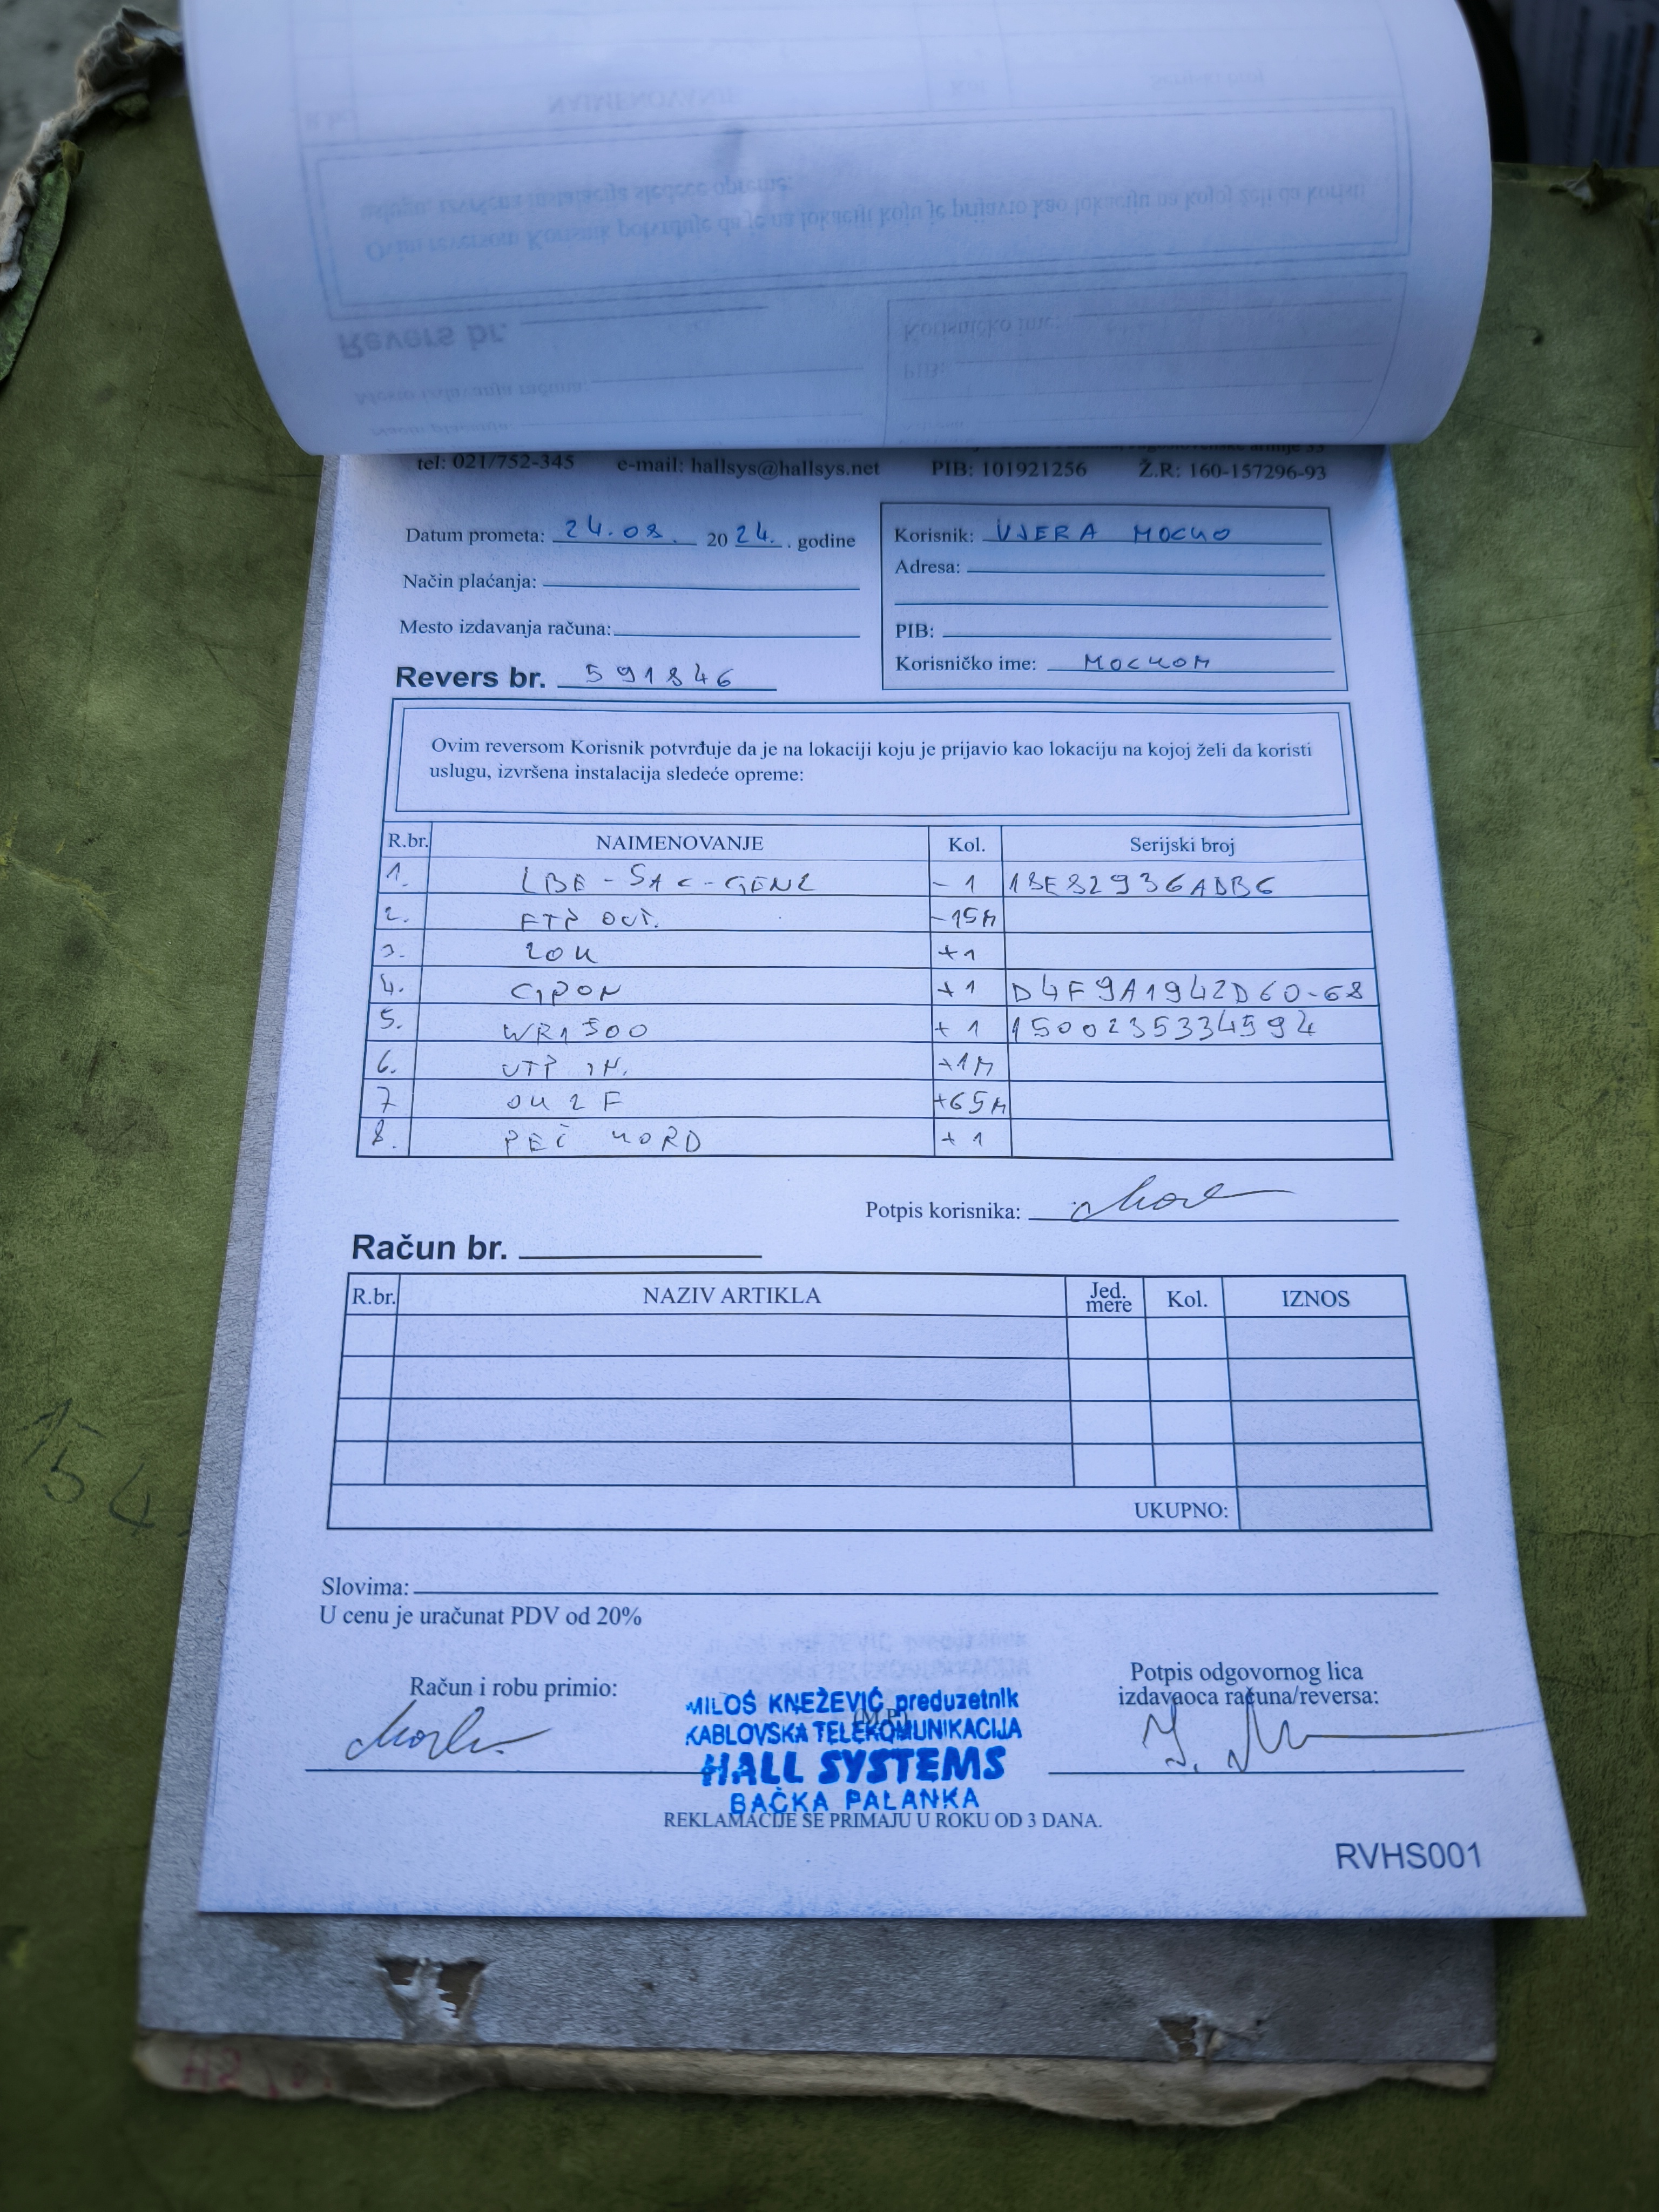 tel: 021/752-345 e-mail: hallsys@hallsys.net PIB: 101921256 Ž.R: 160-157296-93
Datum prometa: 24.08. 2024. . godine
Korisnik: VJERA MOCKO
Način plaćanja:
Adresa:
Mesto izdavanja računa:
PIB:
Revers br. 591846
Korisničko ime: MOCKOM
Ovim reversom Korisnik potvrđuje da je na lokaciji koju je prijavio kao lokaciju na kojoj želi da koristi
uslugu, izvršena instalacija sledeće opreme:
R.br. NAIMENOVANJE Kol. Serijski broj
1. LBE-5AC-GEN2 -1 18E82936ADB6
2. FTP OUT. -15M
3. ZOK +1
4. GPON +1 D4F9A1942D60-68
5. WR1500 +1 1500235334594
6. UTP IN. +1M
7 OK 2F +65M
8. PEČ KORD +1
Potpis korisnika:
Račun br.
R.br. NAZIV ARTIKLA Jed. mere Kol. IZNOS
UKUPNO:
Slovima:
U cenu je uračunat PDV od 20%
Račun i robu primio:
Potpis odgovornog lica
izdavaoca računa/reversa:
(M.P)
MILOŠ KNEŽEVIĆ preduzetnik
KABLOVSKA TELEKOMUNIKACIJA
HALL SYSTEMS
BAČKA PALANKA
REKLAMACIJE SE PRIMAJU U ROKU OD 3 DANA.
RVHS001
154